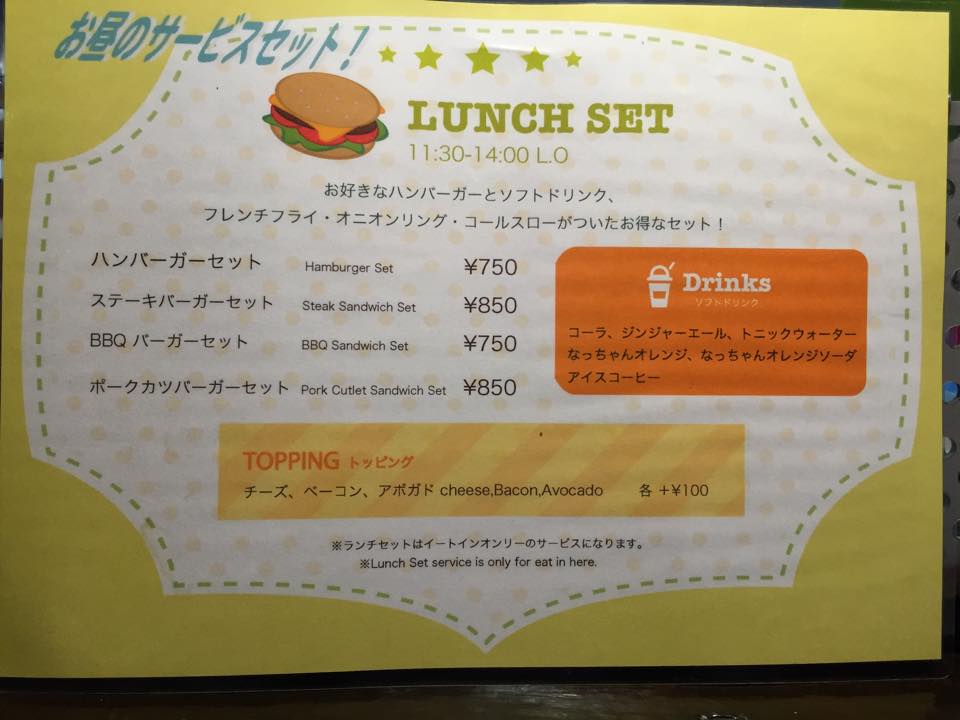 お昼のサービスセット!
LUNCH SET
11:30-14:00 L.O
お好きなハンバーガーとソフトドリンク、
フレンチフライ・オニオンリング・コールスローがついたお得なセット!
ハンバーガーセット Hamburger Set ¥750
ステーキバーガーセット Steak Sandwich Set ¥850
BBQ バーガーセット BBQ Sandwich Set ¥750
ポークカツバーガーセット Pork Cutlet Sandwich Set ¥850
Drinks
ソフトドリンク
コーラ、ジンジャーエール、トニックウォーター
なっちゃんオレンジ、なっちゃんオレンジソーダ
アイスコーヒー
TOPPING トッピング
チーズ、ベーコン、アボガド cheese,Bacon,Avocado 各 +¥100
※ランチセットはイートインオンリーのサービスになります。
※Lunch Set service is only for eat in here.